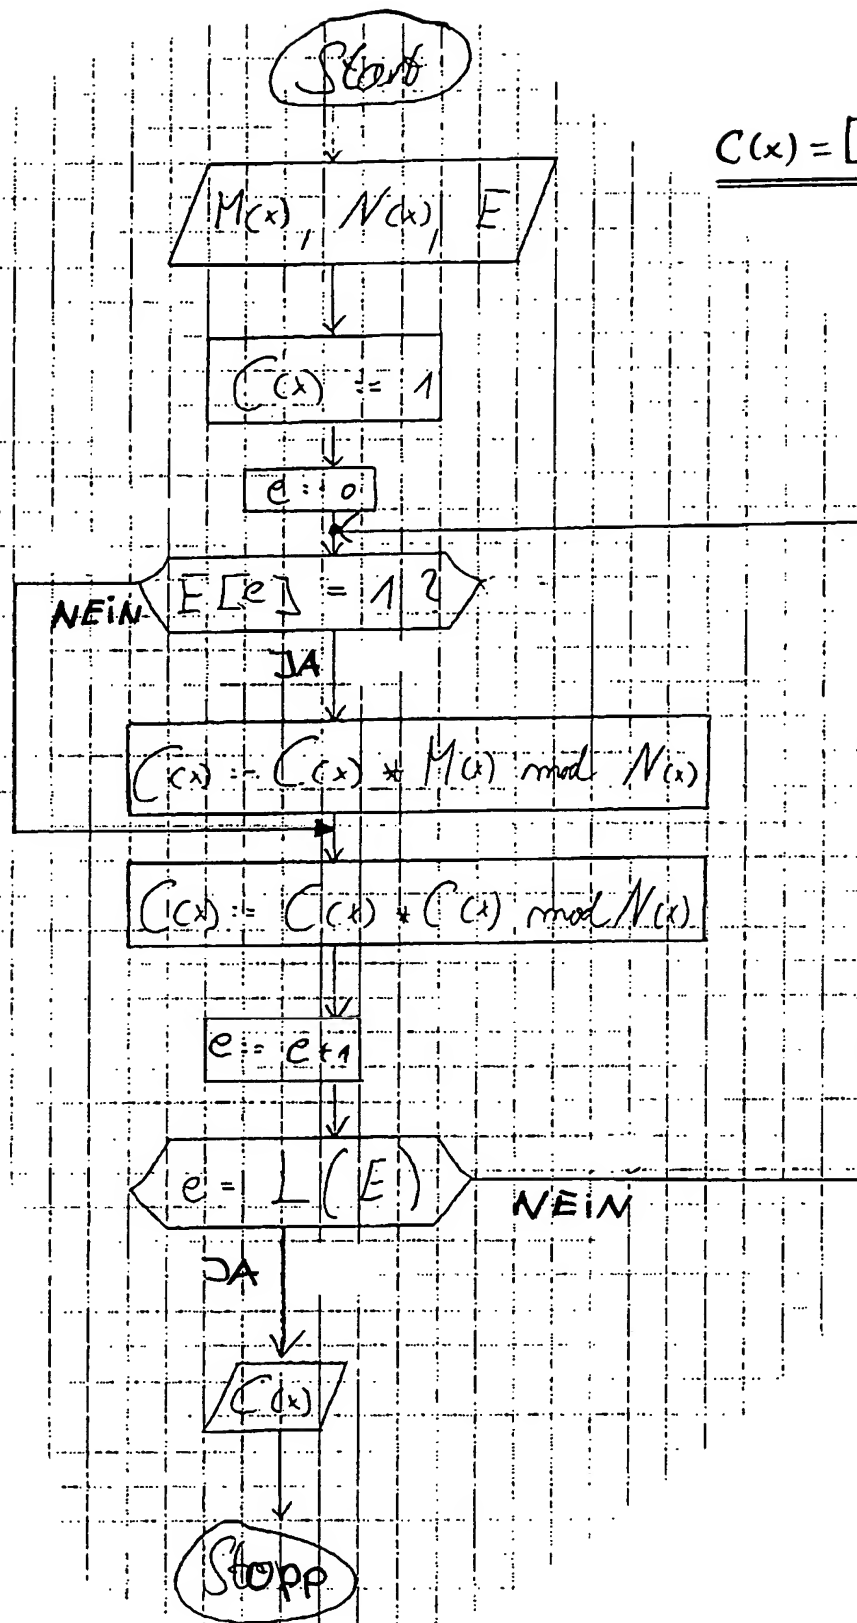 Start
C(x) = [
M(x), N(x), E
C(x) := 1
e := 0
E[e] = 1?
NEIN
JA
C(x) := C(x) * M(x) mod N(x)
C(x) := C(x) * C(x) mod N(x)
e := e+1
e = L(E)
NEIN
JA
C(x)
Stopp